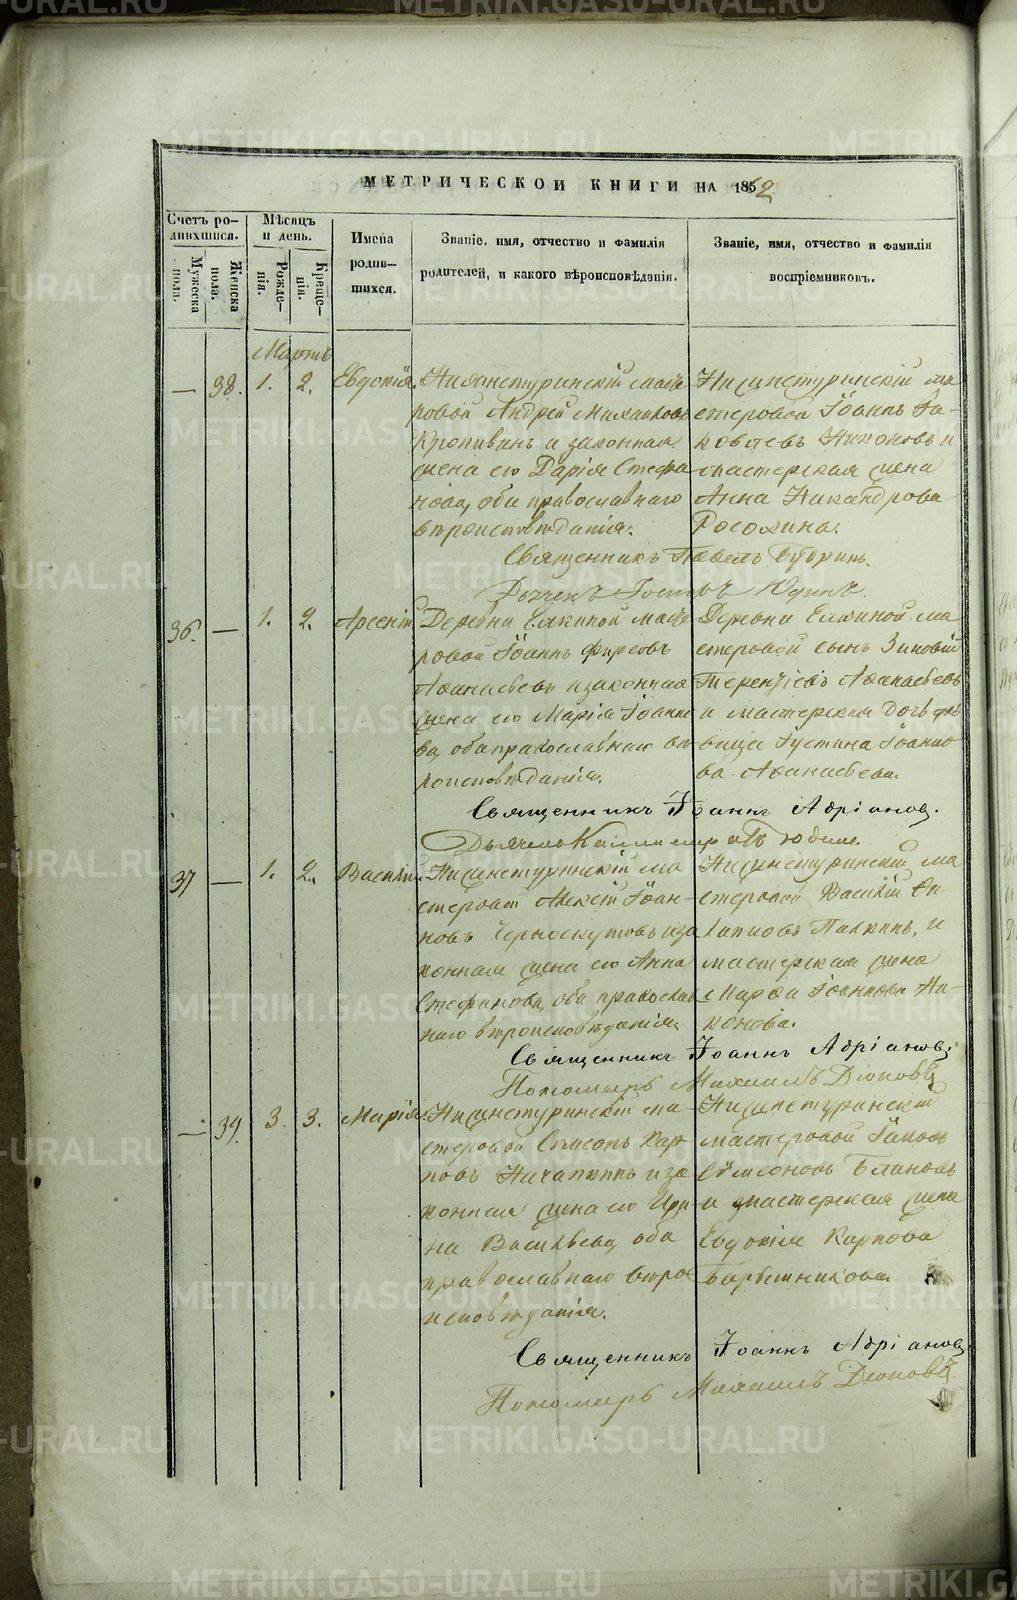 МЕТРИЧЕСКОЙ КНИГИ НА 1862
Счетъ ро-
дившихся.
Мужеска
пола.
Женска
пола.
Мѣсяцъ
и день.
Рожде-
нія.
Креще-
нія.
Имена
родив-
шихся.
Званіе, имя, отчество и фамилія
родителей, и какого вѣроисповѣданія.
Званіе, имя, отчество и фамилія
воспріемниковъ.
Мартъ
— 38. 1. 2. Евдокія.
Нижнетуринскій масте
ровой Андрей Михайловъ
Кропивинъ и законная
жена его Дарія Стефа
нова, оба православнаго
вѣроисповѣданія.
Нижнетуринскій ма
стеровой Іоаннъ Іа-
ковлевъ Никоновъ и
мастерская жена
Анна Никандрова
Росохина.
Священникъ Павелъ
Юдинъ.
36. — 1. 2. Арсеній.
Деревни Елкиной масте
ровой Іоаннъ Фирсовъ
Аѳанасьевъ и законная
жена его Марія Іоанно
ва, оба православнаго вѣ
роисповѣданія.
Деревни Елкиной ма
стеровой сынъ Зиновій
Терентіевъ Аѳанасьевъ
и мастерская дочь дѣ
вица Іустина Іоанно
ва Аѳанасьева.
Священникъ Іоаннъ Адріановъ.
37 — 1. 2. Василій.
Нижнетуринскій ма
стеровой Алексій Іоан-
новъ Черноскутовъ и за
конная жена его Анна
Стефанова, оба православ
наго вѣроисповѣданія.
Нижнетуринскій ма
стеровой Василій
Палкинъ, и
мастерская жена
Марѳа Іоаннова Ни-
конова.
Священникъ Іоаннъ Адріановъ.
Пономарь Михаилъ Діоповъ
— 39. 3. 3. Марія.
Нижнетуринскій ма-
стеровой Симеонъ Кар
повъ и за
конная жена его Ири
на Васильева, оба
православнаго вѣро
исповѣданія.
Нижнетуринскій
мастеровой Іаковъ
Симеоновъ
и мастерская жена
Евдокія Карпова
Священникъ Іоаннъ Адріановъ
Пономарь Михаилъ Діоповъ
METRIKI.GASO-URAL.RU